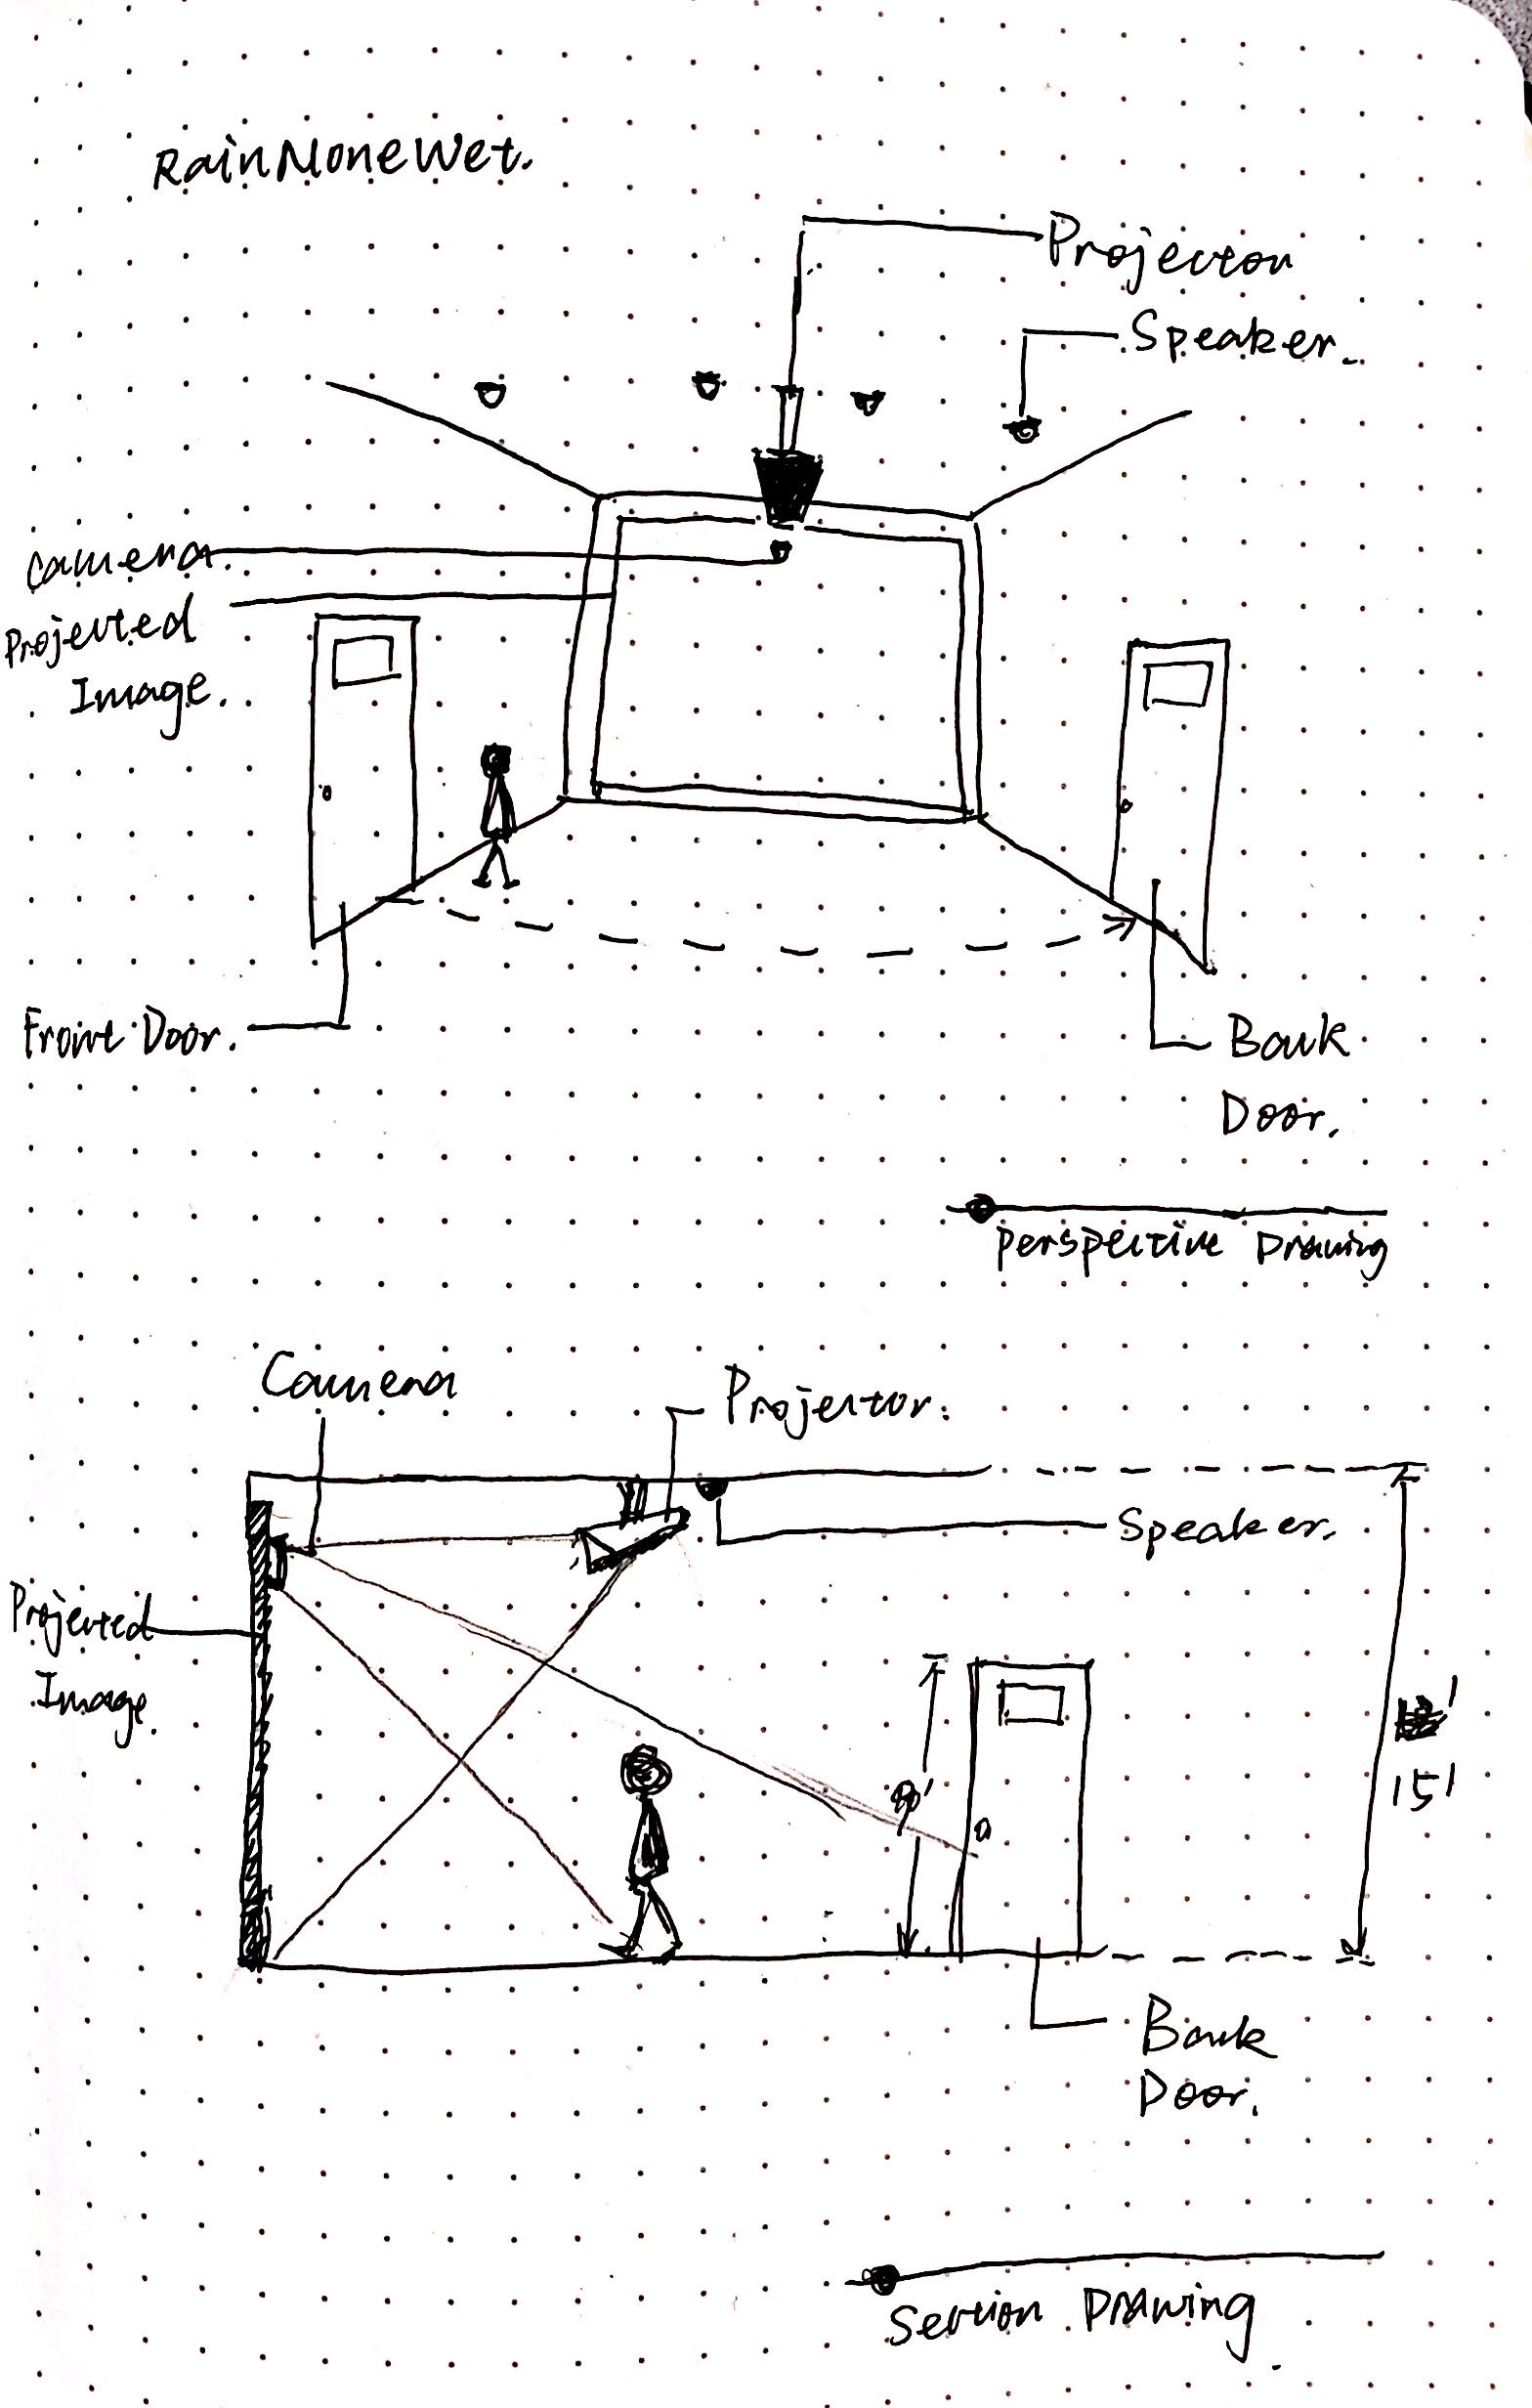 RainNoneWet.
Projector
Speaker.
Camera.
Projected
Image.
Front Door.
Back
Door.
Perspective Drawing
Camera
Projector.
Speaker.
Projected
Image.
15'
Back
Door.
Section Drawing